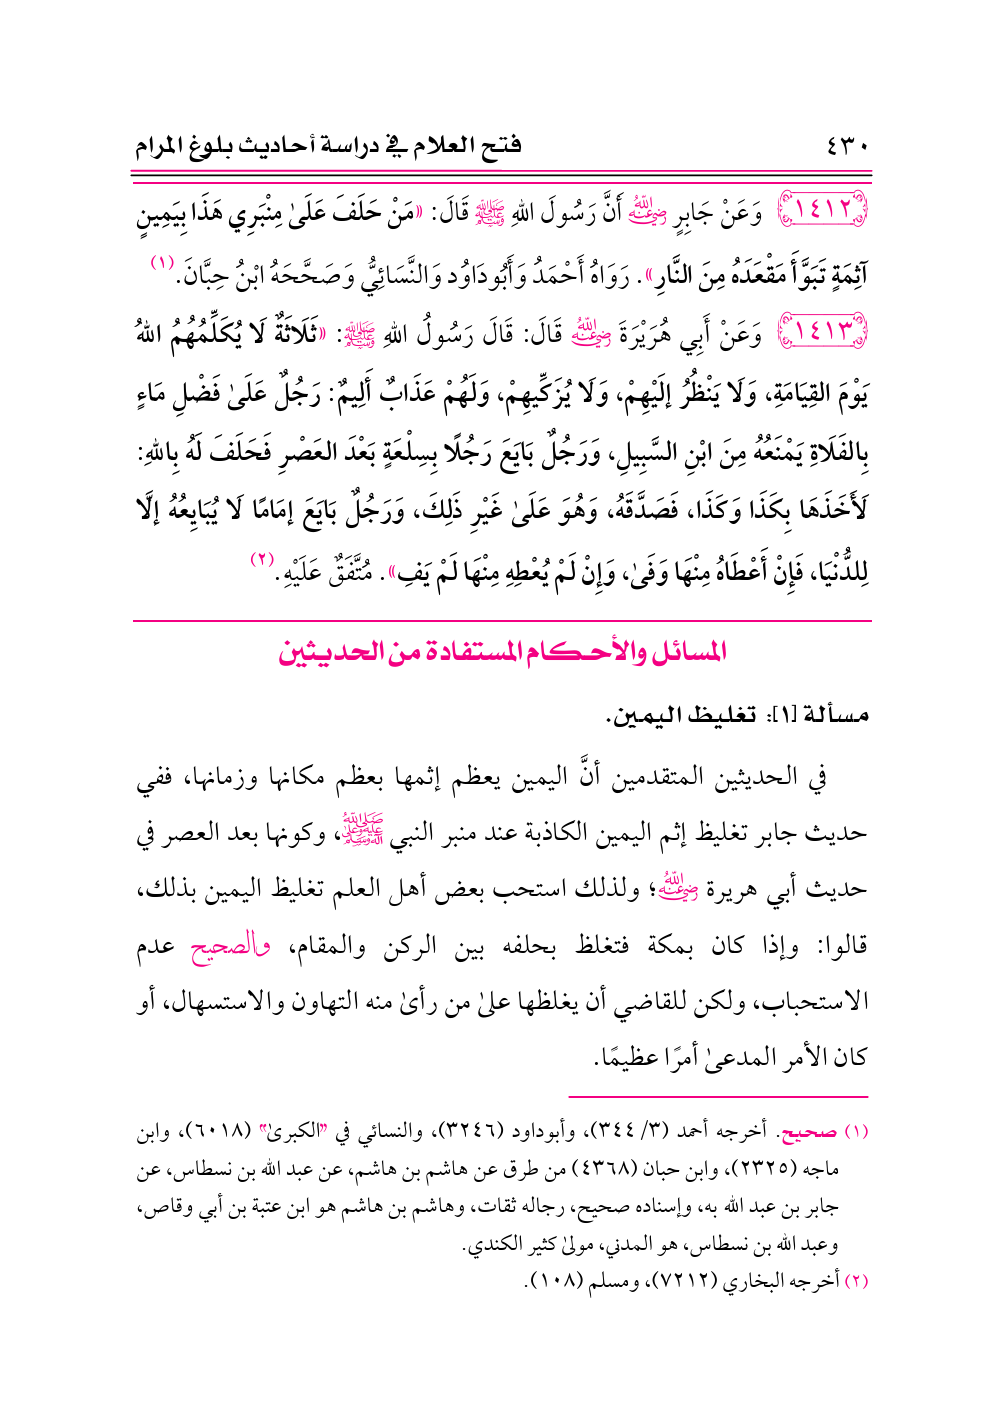 ٤٣٠ فتح العلام في دراسة أحاديث بلوغ المرام
١٤١٢ وَعَنْ جَابِرٍ ﵁ أَنَّ رَسُولَ اللهِ ﷺ قَالَ: «مَنْ حَلَفَ عَلَىٰ مِنْبَرِي هَذَا بِيَمِينٍ
آثِمَةٍ تَبَوَّأَ مَقْعَدَهُ مِنَ النَّارِ». رَوَاهُ أَحْمَدُ وَأَبُودَاوُد وَالنَّسَائِيُّ وَصَحَّحَهُ ابْنُ حِبَّانَ.(١)
١٤١٣ وَعَنْ أَبِي هُرَيْرَةَ ﵁ قَالَ: قَالَ رَسُولُ اللهِ ﷺ: «ثَلَاثَةٌ لَا يُكَلِّمُهُمُ اللهُ
يَوْمَ القِيَامَةِ، وَلَا يَنْظُرُ إلَيْهِمْ، وَلَا يُزَكِّيهِمْ، وَلَهُمْ عَذَابٌ أَلِيمٌ: رَجُلٌ عَلَىٰ فَضْلِ مَاءٍ
بِالفَلَاةِ يَمْنَعُهُ مِنَ ابْنِ السَّبِيلِ، وَرَجُلٌ بَايَعَ رَجُلًا بِسِلْعَةٍ بَعْدَ العَصْرِ فَحَلَفَ لَهُ بِاللهِ:
لَأَخَذَهَا بِكَذَا وَكَذَا، فَصَدَّقَهُ، وَهُوَ عَلَىٰ غَيْرِ ذَلِكَ، وَرَجُلٌ بَايَعَ إمَامًا لَا يُبَايِعُهُ إلَّا
لِلدُّنْيَا، فَإِنْ أَعْطَاهُ مِنْهَا وَفَىٰ، وَإِنْ لَمْ يُعْطِهِ مِنْهَا لَمْ يَفِ». مُتَّفَقٌ عَلَيْهِ.(٢)
المسائل والأحكام المستفادة من الحديثين
مسألة [١]: تغليظ اليمين.
في الحديثين المتقدمين أنَّ اليمين يعظم إثمها بعظم مكانها وزمانها، ففي
حديث جابر تغليظ إثم اليمين الكاذبة عند منبر النبي ﷺ، وكونها بعد العصر في
حديث أبي هريرة ﵁؛ ولذلك استحب بعض أهل العلم تغليظ اليمين بذلك،
قالوا: وإذا كان بمكة فتغلظ بحلفه بين الركن والمقام، والصحيح عدم
الاستحباب، ولكن للقاضي أن يغلظها علىٰ من رأىٰ منه التهاون والاستسهال، أو
كان الأمر المدعىٰ أمرًا عظيمًا.
(١) صحيح. أخرجه أحمد (٣/ ٣٤٤)، وأبوداود (٣٢٤٦)، والنسائي في "الكبرىٰ" (٦٠١٨)، وابن
ماجه (٢٣٢٥)، وابن حبان (٤٣٦٨) من طرق عن هاشم بن هاشم، عن عبد الله بن نسطاس، عن
جابر بن عبد الله به، وإسناده صحيح، رجاله ثقات، وهاشم بن هاشم هو ابن عتبة بن أبي وقاص،
وعبد الله بن نسطاس، هو المدني، مولىٰ كثير الكندي.
(٢) أخرجه البخاري (٧٢١٢)، ومسلم (١٠٨).